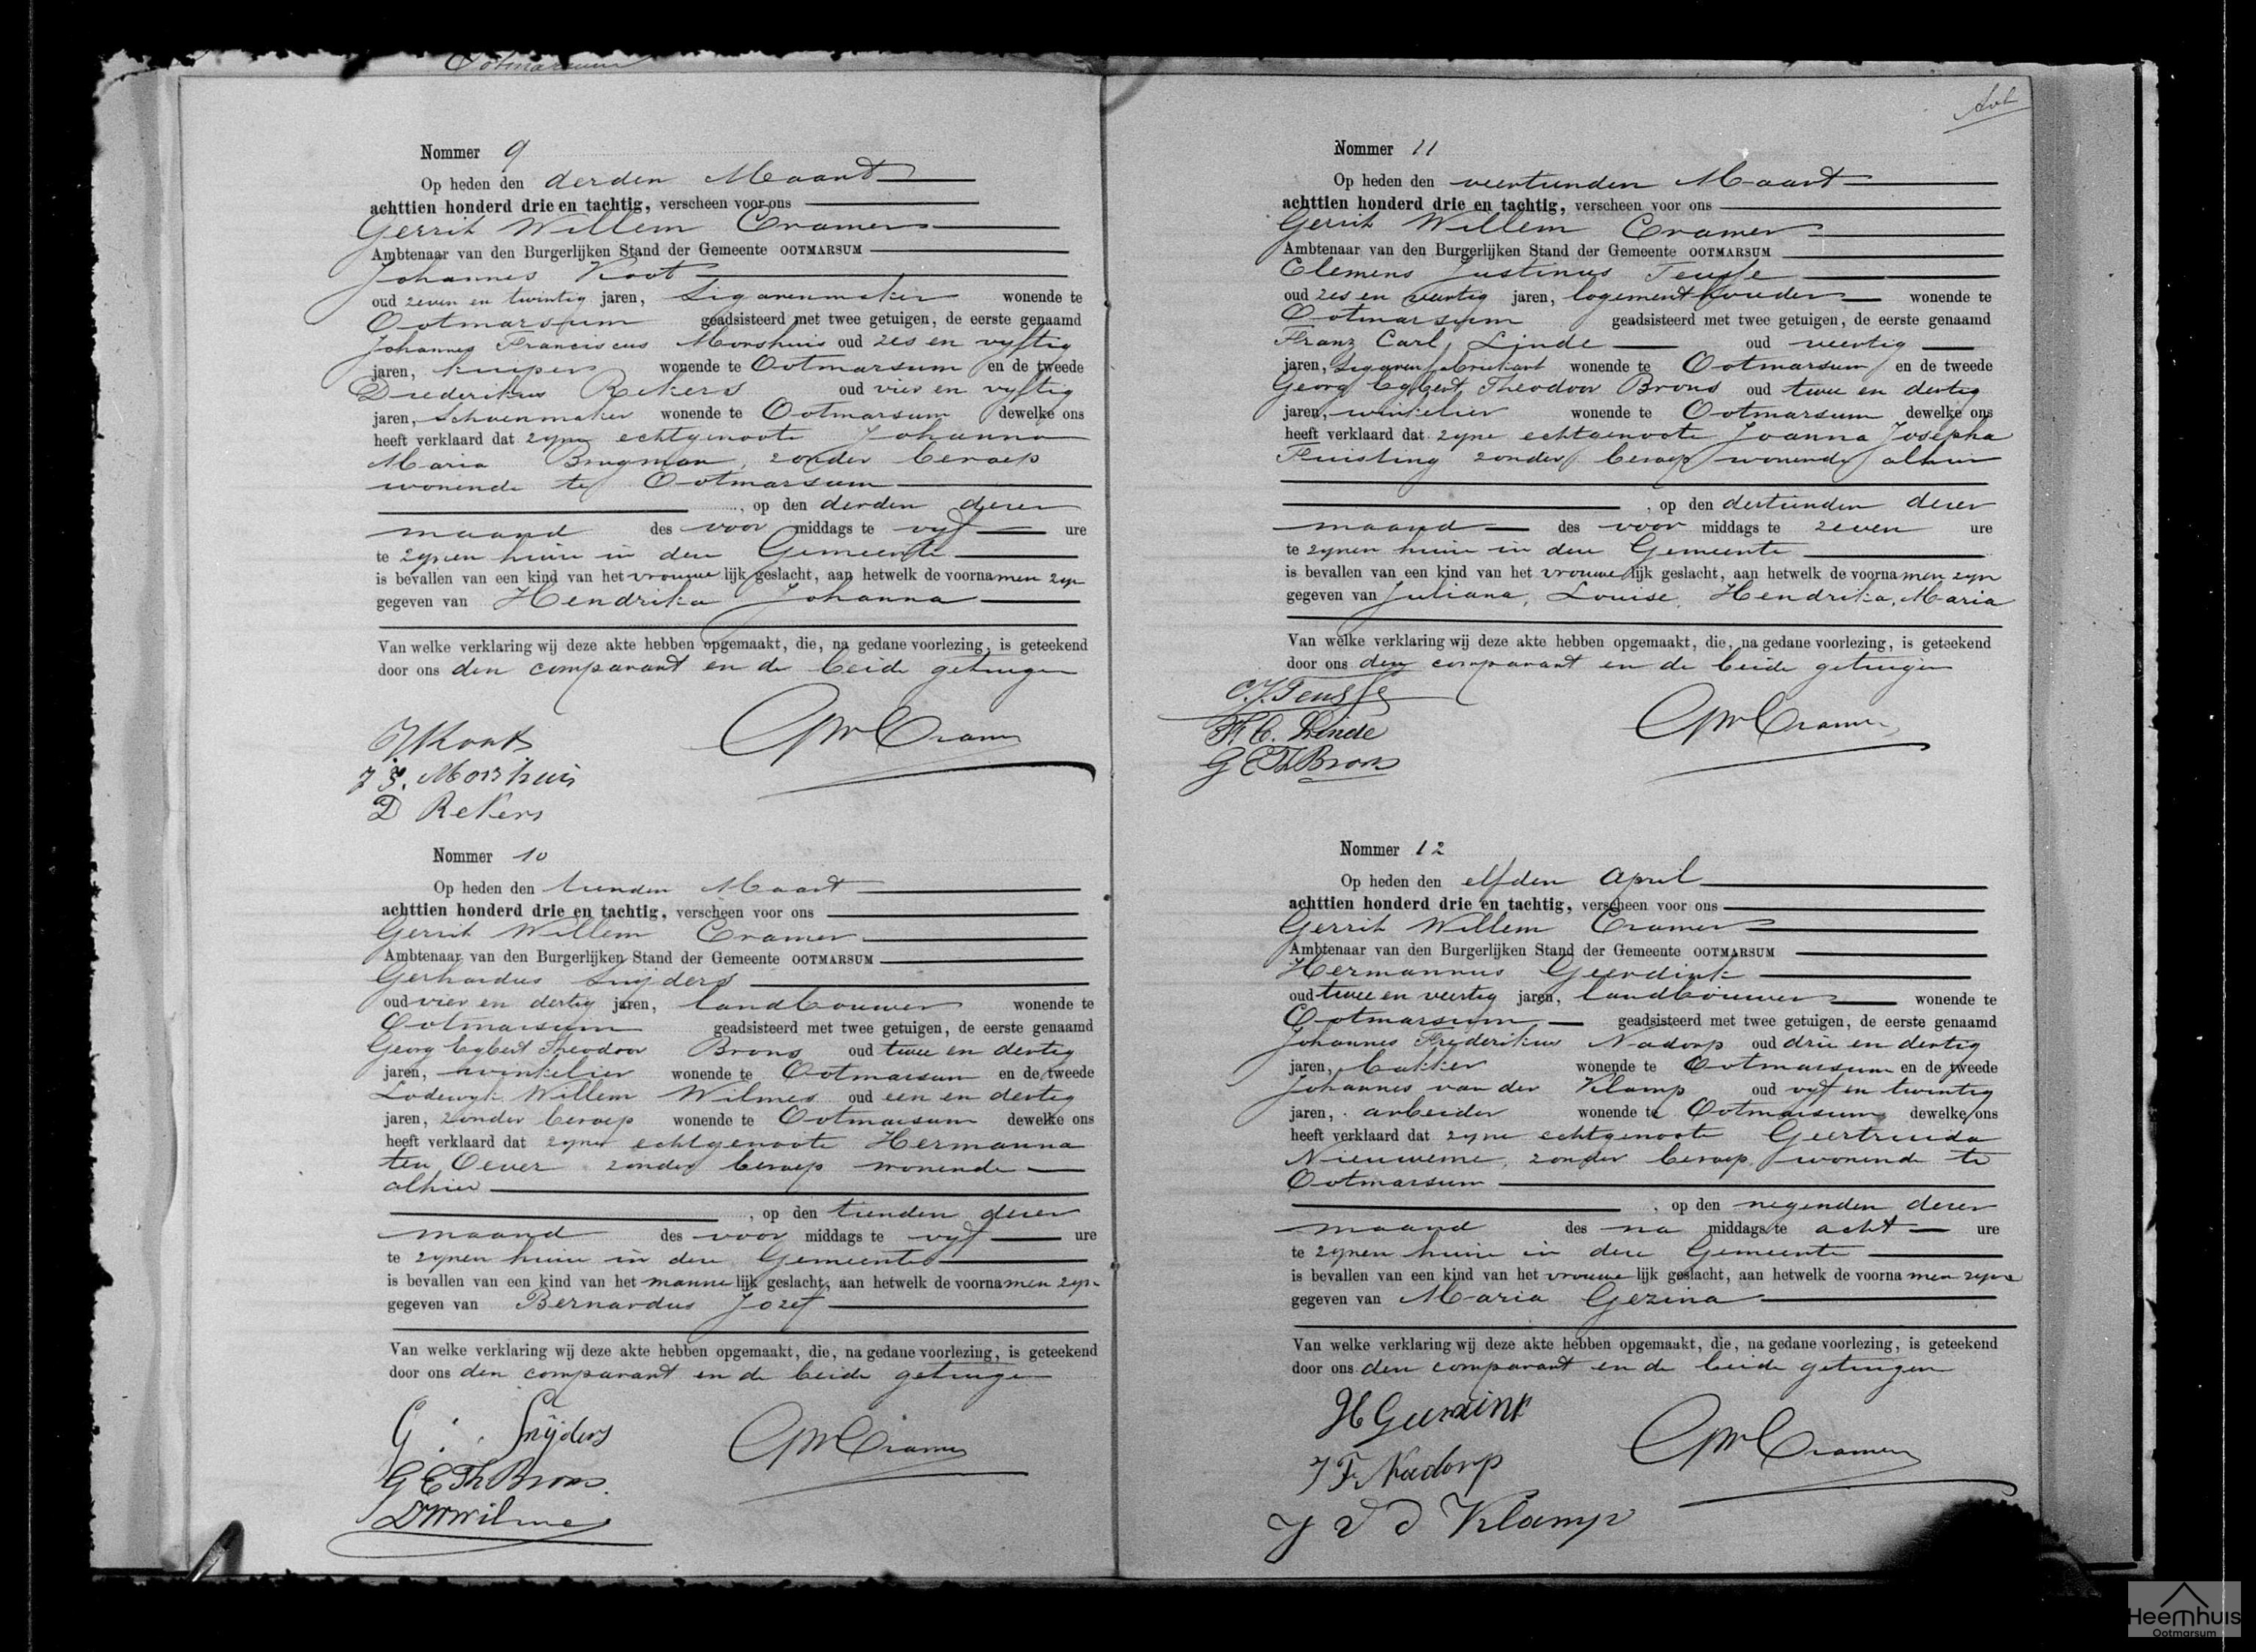 Ootmarsum
Nommer 9
Op heden den derden Maart
achttien honderd drie en tachtig, verscheen voor ons
Gerrit Willem Cramer
Ambtenaar van den Burgerlijken Stand der Gemeente OOTMARSUM
Johannes Koot
oud zeven en twintig jaren, Sigarenmaker wonende te
Ootmarsum geadsisteerd met twee getuigen, de eerste genaamd
Johannes Franciscus Morshuis oud zes en vyftig
jaren, kuiper wonende te Ootmarsum en de tweede
Diederikus Rekers oud vier en vyftig
jaren, Schoenmaker wonende te Ootmarsum dewelke ons
heeft verklaard dat zyne echtgenoote Johanna
Maria Brugman, zonder beroep
wonende te Ootmarsum
, op den derden dezer
maand des voor middags te vyf ure
te zynen huize in deze Gemeente
is bevallen van een kind van het vrouwe lijk geslacht, aan hetwelk de voornamen zyn
gegeven van Hendrika Johanna
Van welke verklaring wij deze akte hebben opgemaakt, die, na gedane voorlezing, is geteekend
door ons den comparant en de beide getuigen
J Koot
GW Cramer
J. F. Morshuis
D Rekers
Nommer 10
Op heden den tienden Maart
achttien honderd drie en tachtig, verscheen voor ons
Gerrit Willem Cramer
Ambtenaar van den Burgerlijken Stand der Gemeente OOTMARSUM
Gerhardus Snijders
oud vier en dertig jaren, landbouwer wonende te
Ootmarsum geadsisteerd met twee getuigen, de eerste genaamd
Georg Egbert Theodoor Brons oud twee en dertig
jaren, winkelier wonende te Ootmarsum en de tweede
Lodewyk Willem Wilmes oud een en dertig
jaren, zonder beroep wonende te Ootmarsum dewelke ons
heeft verklaard dat zyne echtgenoote Hermanna
ten Oever zonder beroep wonende
alhier
, op den tienden dezer
maand des voor middags te vyf ure
te zynen huize in deze Gemeente
is bevallen van een kind van het manne lijk geslacht, aan hetwelk de voornamen zyn
gegeven van Bernardus Jozef
Van welke verklaring wij deze akte hebben opgemaakt, die, na gedane voorlezing, is geteekend
door ons den comparant en de beide getuigen
G. Snijders
GW Cramer
G E Th Brons.
LWWilmes
Nommer 11
Op heden den veertienden Maart
achttien honderd drie en tachtig, verscheen voor ons
Gerrit Willem Cramer
Ambtenaar van den Burgerlijken Stand der Gemeente OOTMARSUM
Clemens Justinus Teusse
oud zes en veertig jaren, logementhouder wonende te
Ootmarsum geadsisteerd met twee getuigen, de eerste genaamd
Franz Carl Linde oud veertig
jaren, Sigarenfabriekant wonende te Ootmarsum en de tweede
Georg Egbert Theodoor Brons oud twee en dertig
jaren, winkelier wonende te Ootmarsum dewelke ons
heeft verklaard dat zyne echtgenoote Joanna Josepha
Fuisting zonder beroep wonende alhier
, op den dertienden dezer
maand des voor middags te zeven ure
te zynen huize in deze Gemeente
is bevallen van een kind van het vrouwe lijk geslacht, aan hetwelk de voornamen zyn
gegeven van Juliana, Louise, Hendrika, Maria
Van welke verklaring wij deze akte hebben opgemaakt, die, na gedane voorlezing, is geteekend
door ons den comparant en de beide getuigen
C. J. Teusse
GW Cramer
Fr. C. Linde
G E Th Brons
Nommer 12
Op heden den elfden April
achttien honderd drie en tachtig, verscheen voor ons
Gerrit Willem Cramer
Ambtenaar van den Burgerlijken Stand der Gemeente OOTMARSUM
Hermannus Geerdink
oud twee en veertig jaren, landbouwer wonende te
Ootmarsum geadsisteerd met twee getuigen, de eerste genaamd
Johannes Frederikus Nadorp oud drie en dertig
jaren, bakker wonende te Ootmarsum en de tweede
Johannes van der Klamp oud vyf en twintig
jaren, arbeider wonende te Ootmarsum dewelke ons
heeft verklaard dat zyne echtgenoote Geertruida
Nieuweme, zonder beroep, wonende te
Ootmarsum
, op den negenden dezer
maand des na middags te acht ure
te zynen huize in deze Gemeente
is bevallen van een kind van het vrouwe lijk geslacht, aan hetwelk de voornamen zyn
gegeven van Maria Gezina
Van welke verklaring wij deze akte hebben opgemaakt, die, na gedane voorlezing, is geteekend
door ons den comparant en de beide getuigen
H Geerdink
GW Cramer
J F Nadorp
J v d Klamp
Heemhuis
Ootmarsum